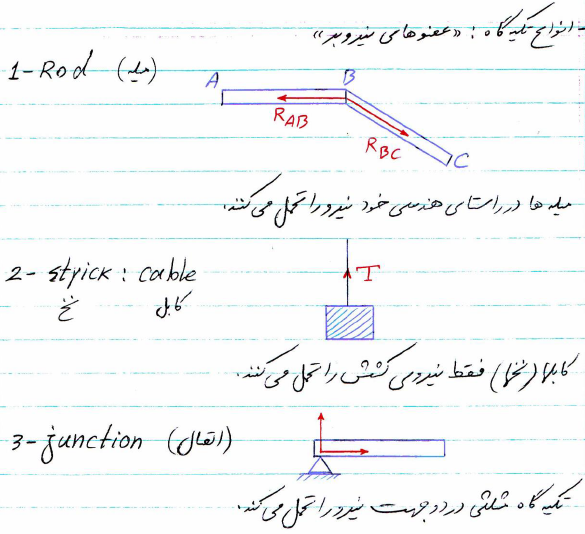 - انواع تکیه گاه : «عضوهای نیروبر»
1- Rod (میله)
A B
R_AB
R_BC
C
میله ها در راستای هندسی خود نیرو را تحمل می کنند.
2- strick : cable
T
نخ کابل
کابلها (نخها) فقط نیروی کشش را تحمل می کنند.
3- junction (اتصال)
تکیه گاه مثلثی در دو جهت نیرو را تحمل می کند.